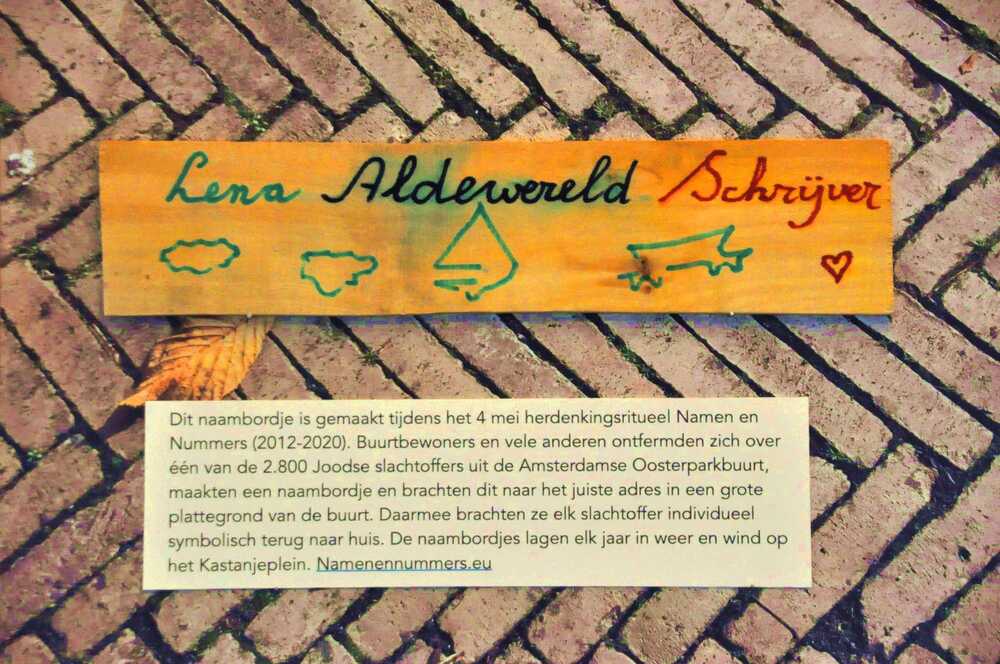 Lena Aldewereld Schrijver
Dit naambordje is gemaakt tijdens het 4 mei herdenkingsritueel Namen en
Nummers (2012-2020). Buurtbewoners en vele anderen ontfermden zich over
één van de 2.800 Joodse slachtoffers uit de Amsterdamse Oosterparkbuurt,
maakten een naambordje en brachten dit naar het juiste adres in een grote
plattegrond van de buurt. Daarmee brachten ze elk slachtoffer individueel
symbolisch terug naar huis. De naambordjes lagen elk jaar in weer en wind op
het Kastanjeplein. Namenennummers.eu